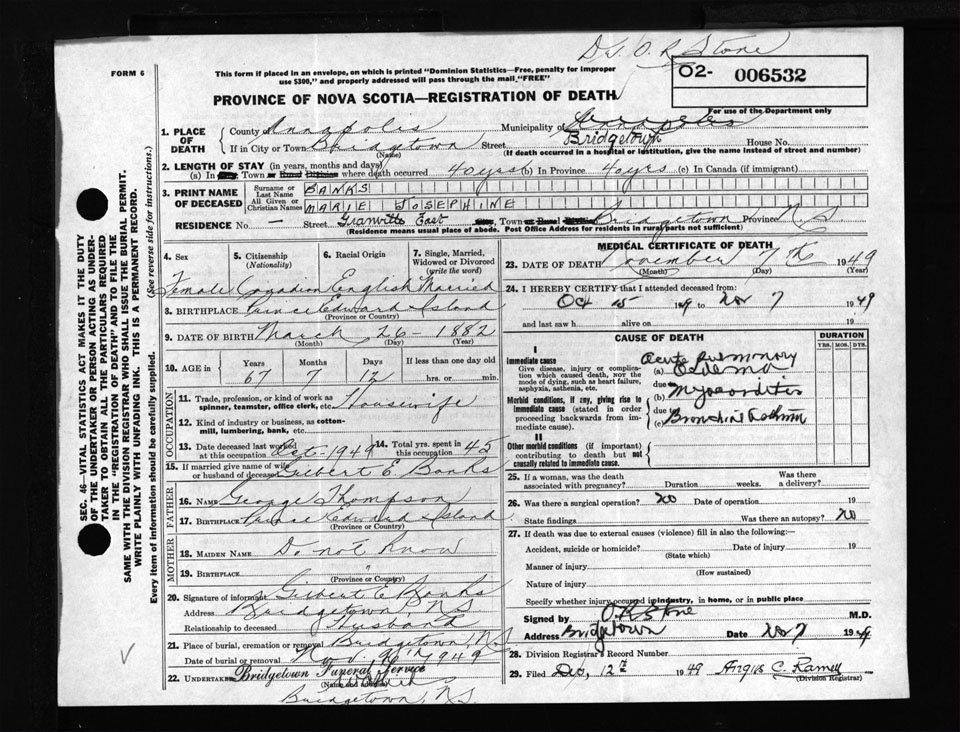 Dr. O. R. Stone
FORM 6
This form if placed in an envelope, on which is printed "Dominion Statistics—Free, penalty for improper
use $300," and properly addressed will pass through the mail "FREE"
O2- 006532
PROVINCE OF NOVA SCOTIA—REGISTRATION OF DEATH
For use of the Department only
1. PLACE OF DEATH
County Annapolis Municipality of Annapolis
If in City or Town Bridgetown Street Bridgetown House No.
(Name) (If death occurred in a hospital or institution, give the name instead of street and number)
2. LENGTH OF STAY (in years, months and days)
(a) In Town where death occurred 40 yrs (b) In Province 40 yrs (c) In Canada (if immigrant)
3. PRINT NAME OF DECEASED
Surname or Last Name BANKS
All Given or Christian Names MARIE JOSEPHINE
RESIDENCE No. — Street Granville East Town Bridgetown Province N.S.
(Residence means usual place of abode. Post Office Address for residents in rural parts not sufficient)
4. Sex 5. Citizenship (Nationality) 6. Racial Origin 7. Single, Married, Widowed or Divorced (write the word)
Female Canadian English Married
8. BIRTHPLACE Prince Edward Island
(Province or Country)
9. DATE OF BIRTH March 26 - 1882
(Month) (Day) (Year)
10. AGE in Years Months Days If less than one day old
67 7 12 hrs. or min.
OCCUPATION
11. Trade, profession, or kind of work as spinner, teamster, office clerk, etc. Housewife
12. Kind of industry or business, as cotton-mill, lumbering, bank, etc.
13. Date deceased last worked at this occupation Oct - 1949 14. Total yrs. spent in this occupation 45
15. If married give name of wife or husband of deceased Gilbert E. Banks
FATHER
16. NAME George Thompson
17. BIRTHPLACE Prince Edward Island
(Province or Country)
MOTHER
18. MAIDEN NAME Do not Know
19. BIRTHPLACE "
(Province or Country)
20. Signature of informant Gilbert E Banks
Address Bridgetown, N.S
Relationship to deceased Husband
21. Place of burial, cremation or removal Bridgetown, N.S
Date of burial or removal Nov. 9th 1949
22. UNDERTAKER Bridgetown Funeral Service
(Name and address)
Bridgetown, N.S.
MEDICAL CERTIFICATE OF DEATH
23. DATE OF DEATH November 7th 1949
(Month) (Day) (Year)
24. I HEREBY CERTIFY that I attended deceased from:
Oct 15 1949 to Nov 7 1949
and last saw h alive on 19
CAUSE OF DEATH
DURATION
YRS. MOS. DYS.
I
Immediate cause
Give disease, injury or complication which caused death, not the mode of dying, such as heart failure, asphyxia, asthenia, etc.
(a) Acute Pulmonary Oedema
due to
Morbid conditions, if any, giving rise to immediate cause (stated in order proceeding backwards from immediate cause).
(b) Myocarditis
due to
(c) Bronchial Asthma
II
Other morbid conditions (if important) contributing to death but not causally related to immediate cause.
25. If a woman, was the death associated with pregnancy? Duration weeks. Was there a delivery?
26. Was there a surgical operation? No Date of operation 19
State findings Was there an autopsy? No
27. If death was due to external causes (violence) fill in also the following:—
Accident, suicide or homicide? Date of injury 19
(State which)
Manner of injury
(How sustained)
Nature of injury
Specify whether injury occurred in industry, in home, or in public place
Signed by O. R. Stone M.D.
Address Bridgetown Date Nov 7 1949
28. Division Registrar's Record Number
29. Filed Dec. 12th 1949 Angus C. Ramey
(Division Registrar)
SEC. 46—VITAL STATISTICS ACT MAKES IT THE DUTY
OF THE UNDERTAKER OR PERSON ACTING AS UNDER-
TAKER TO OBTAIN ALL THE PARTICULARS REQUIRED
IN THE "REGISTRATION OF DEATH" AND TO FILE THE
SAME WITH THE DIVISION REGISTRAR WHO SHALL ISSUE THE BURIAL PERMIT.
WRITE PLAINLY WITH UNFADING INK. THIS IS A PERMANENT RECORD.
Every item of information should be carefully supplied. (See reverse side for instructions.)